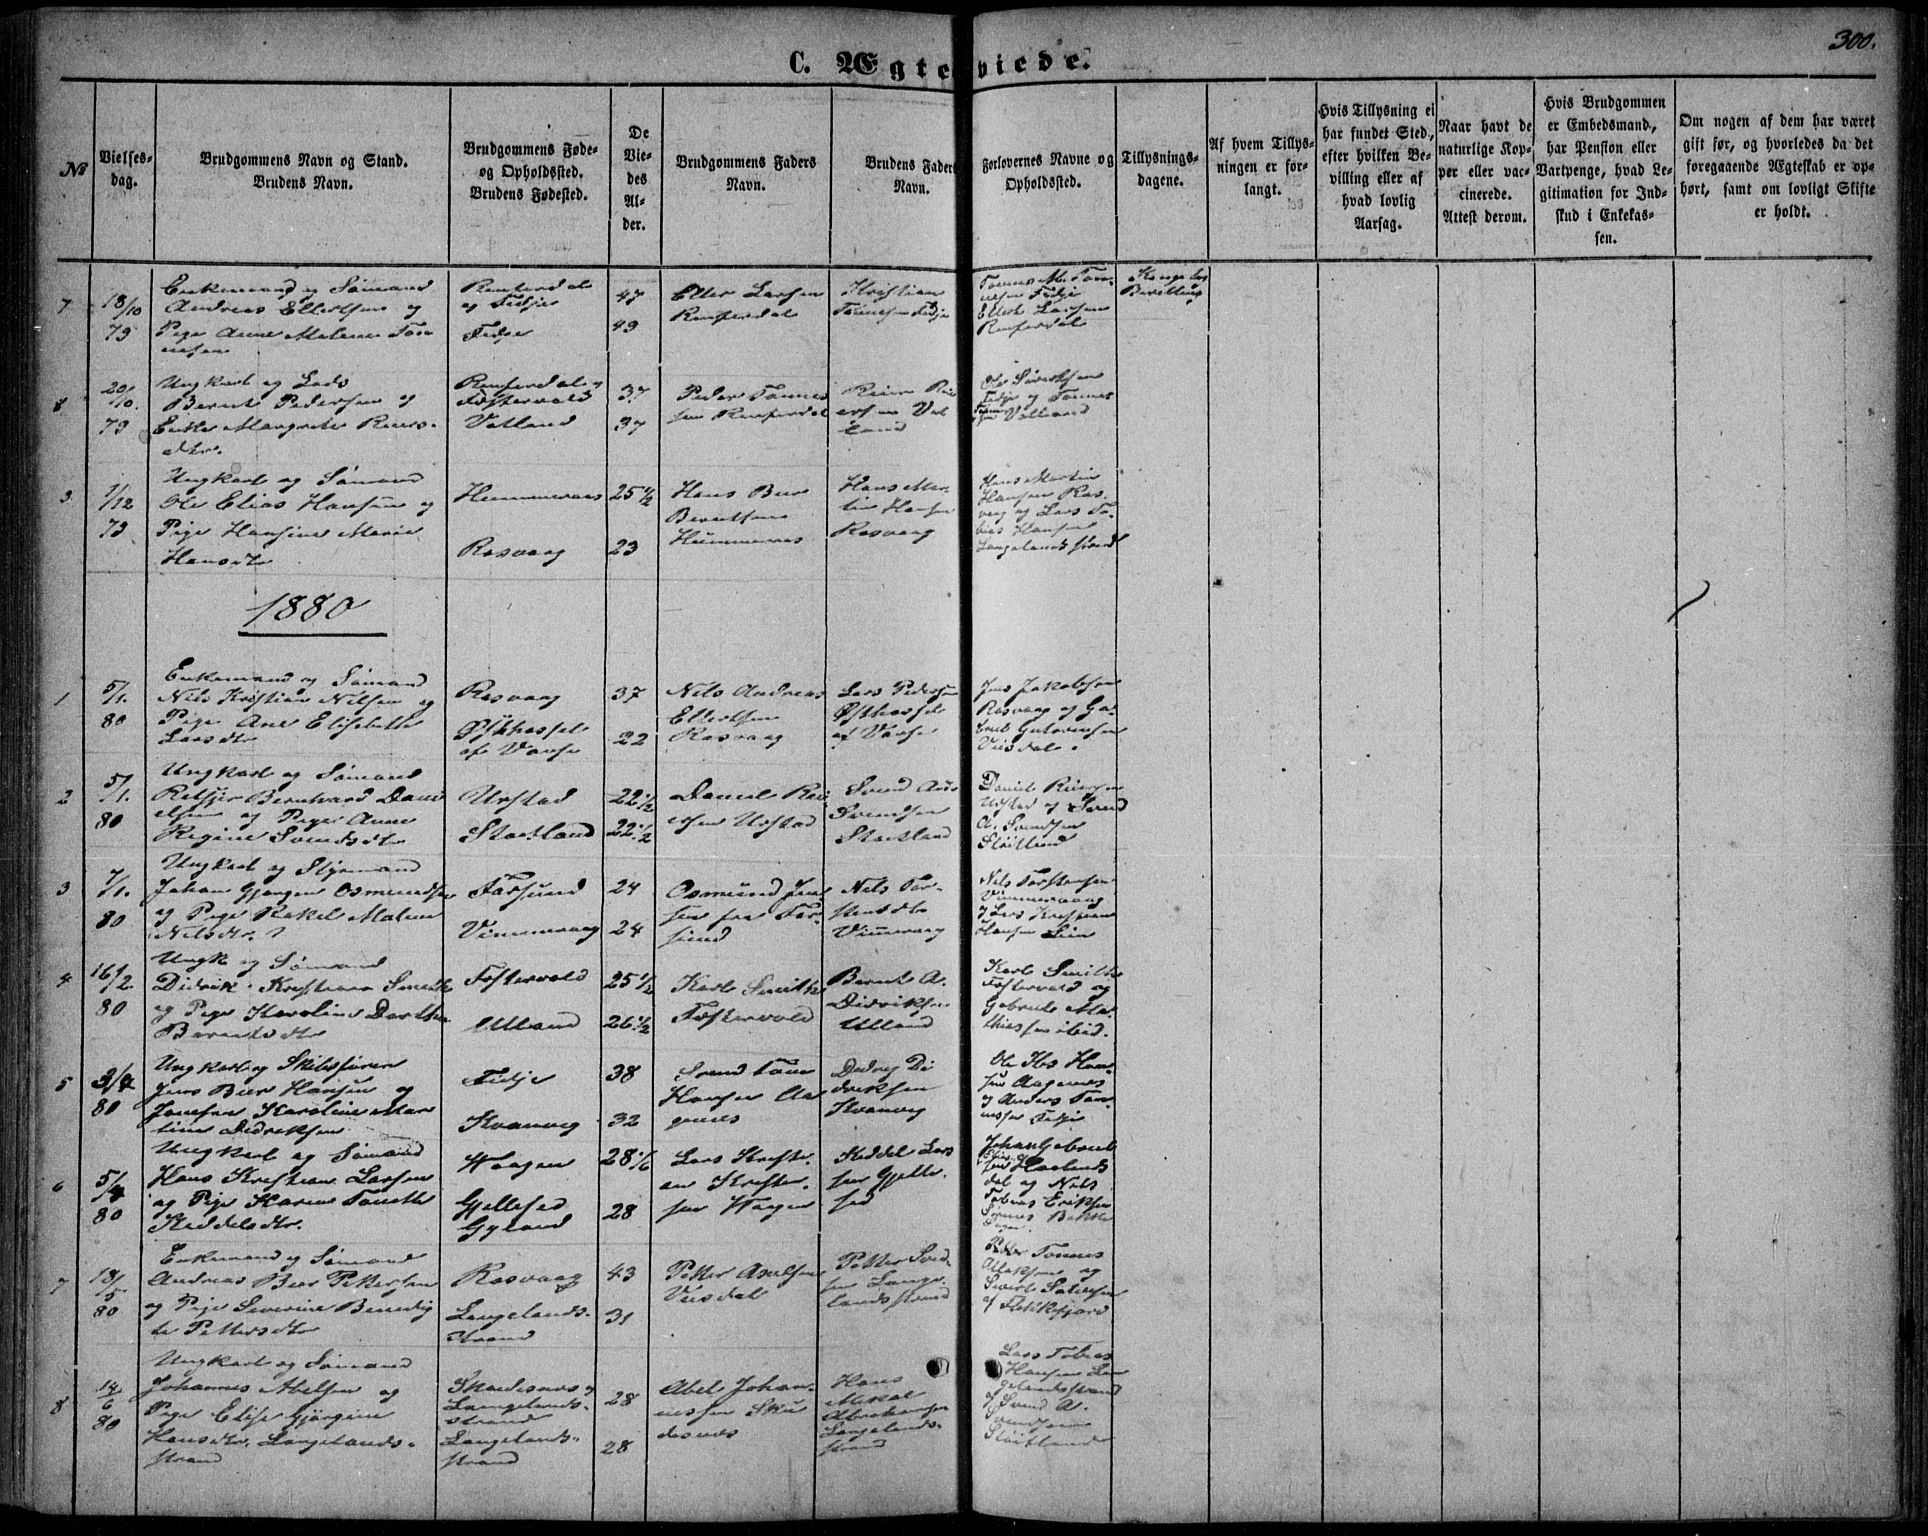 300.
C. Ægteviede.
№
Vielses-
dag.
Brudgommens Navn og Stand.
Brudens Navn.
Brudgommens Føde-
og Opholdssted.
Brudens Fødested.
De
Vie-
des
Al-
der.
Brudgommens Faders
Navn.
Brudens Faders
Navn.
Forlovernes Navne og
Opholdssted.
Tillysnings-
dagene.
Af hvem Tillys-
ningen er for-
langt.
Hvis Tillysning ei
har fundet Sted,
efter hvilken Be-
villing eller af
hvad lovlig
Aarsag.
Naar havt de
naturlige Kop-
per eller vac-
cinerede.
Attest derom.
Hvis Brudgommen
er Embedsmand,
har Pension eller
Vartpenge, hvad Le-
gitimation for Ind-
skud i Enkekas-
sen.
Om nogen af dem har været
gift før, og hvorledes da det
foregaaende Ægteskab er op-
hørt, samt om lovligt Skifte
er holdt.
7
13/10
79
Enkemand og Sømand
Andreas Ellertsen og
Pige Anne Malene Tøn
nesen
og Fidje
Fidje
47
49
Eller Larsen
Kristian
Tønnesen Fidje
Tønnes M. Tøn-
nesen Fidje
Ellert Larsen
8
20/10
79
Ungkarl og Lods
Bernt Pedersen og
Enke Margrete Reiers-
dtr.
Føstervold
Vatland
37
37
Peder Tønnes
sen
Reier Rei
ersen Vat
land
Ole Sivertsen
Fidje og Tønnes
Vatland
9
1/12
79
Ungkarl og Sømand
Ole Elias Hansen og
Pige Hansine Marie
Hansdtr
Hummeraas
Rasvaag
25 1/2
23
Hans Beer
Berntsen
Hummeraas
Hans Mar-
tin Hansen
Rasvaag
Hans Martin
Hansen Ras-
vaag og Lars To-
bias Hansen
Langelandsstrand
1880
1
5/1.
80
Enkemand og Sømand
Nils Kristian Nilsen og
Pige Ane Elisabeth
Larsdtr
Rasvaag
Østhassel
af Vanse
37
22
Nils Andreas
Ellertsen
Rasvaag
Lars Pedersen
Østhassel
af Vanse
Jens Jakobsen
Rasvaag og Ga-
briel Gulovsen
Veisdal.
2
5/1.
80
Ungkarl og Sømand
Reitzer Bernhard Dani
elsen og Pige Anne
Regine Svendsdtr
Urstad
Stortland
22 1/2
22 1/2
Daniel Rei
ersen Urstad
Svend Aus
Svendsen
Stortland
Daniel Reiersen
Urstad og Svend
A. Svendsen
Sløitland
3
7/1.
80
Ungkarl og Styrmand
Johan Gjørgen Osmundsen
og Pige Rakel Malene
Nilsdtr.
Farsund
Vimmervaag
24
24
Osmund Jen
sen fra Far-
sund
Nils Tor-
stensdtr
Vimmervaag
Nils Torstensen
Vimmervaag
og Lars Kristian
Hansen Lien
4
16/2.
80
Ungk og Sømand
Didrik Kristian Smith
og Pige Karoline Dorthea
Berentsdtr
Føstervold
Ulland
25 1/2
26 1/2
Karl Smith
Føstervold
Berent A.
Didriksen
Ulland
Karl Smith
Føstervold og
Gabriel Ma-
thiassen ibid.
5
3/4
80
Ungkarl og Skibsfører
Jens Beer Hansen og
Jomfru Karoline Mar
tine Didriksen
Fidje
Kvanvig
38
32
Svend Tøn
Hansen Aa
genes
Didrik Di
driksen
Kvanvig
Ole Hans Han-
sen Aagenes
og Anders Tøn-
nesen Fidje
6
5/4
80
Ungkarl og Sømand
Hans Kristian Larsen
og Pige Karen Tomine
Keddelsdtr.
Haagen
Gjellesed
Gyland
28 1/6
28
Lars Kristi-
an Kristen-
sen Haagen
Keddel Lars
sen Gjelle-
sed
Johan Gabriel
Haaland
dal og Nils
Tobias Eriksen
7
18/5
80
Enkemand og Sømand
Andreas Beer Pettersen
og Pige Severine Benedig
te Pettersdtr
Rasvaag
Langelands-
strand
43
31
Petter Axelsen
Veisdal
Petter Svend
sen Lange-
landsstrand
Peder Tønnes
Aleksen og
Sivert Salvesen
af Flekkefjord
8
14/6
80
Ungkarl og Sømand
Johannes Abelsen og
Pige Elise Gjørgine
Hansdtr. Langelands-
strand
Skadesnes og
Langelands-
strand
Langelands-
strand
28
28
Abel Johan-
nessen Ska
desnes
Hans
Mikal
Abrahamsen
Langelands-
strand
Lars Tobias
Hansen Lan
gelandsstrand
og Svend A.
Svendsen
Sløitland